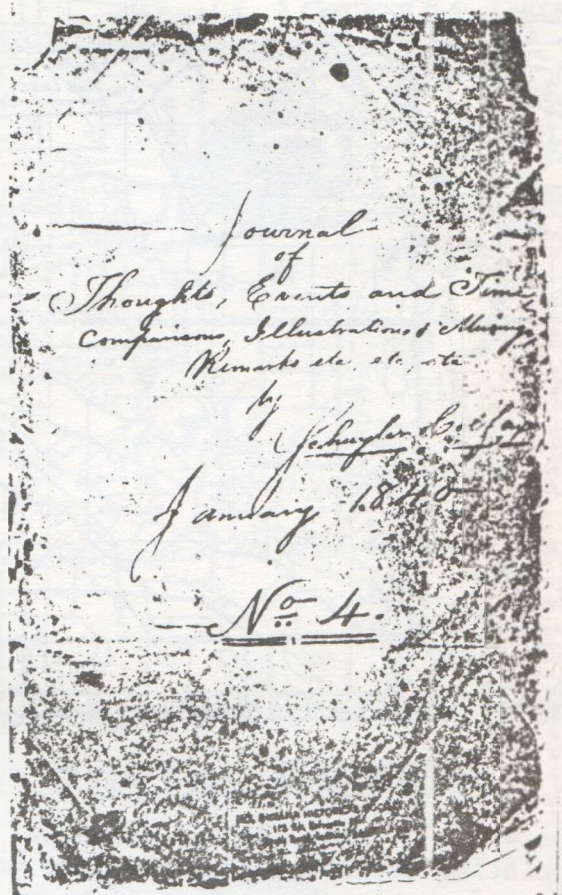 Journal
of
Thoughts, Events and Time
Comparisons, Illustrations & Musings
Remarks etc, etc, etc
by
Schuyler Colfax
January 184
No 4.